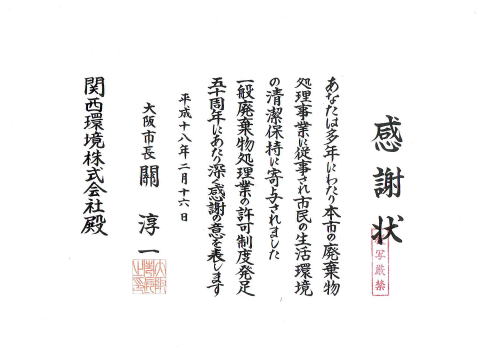 感謝状
写厳禁
あなたは多年にわたり本市の廃棄物
処理事業に従事され市民の生活環境
の清潔保持に寄与されました
一般廃棄物処理業の許可制度発足
五十周年にあたり深く感謝の意を表します
平成十八年二月十六日
大阪市長 關淳一
関西環境株式会社殿